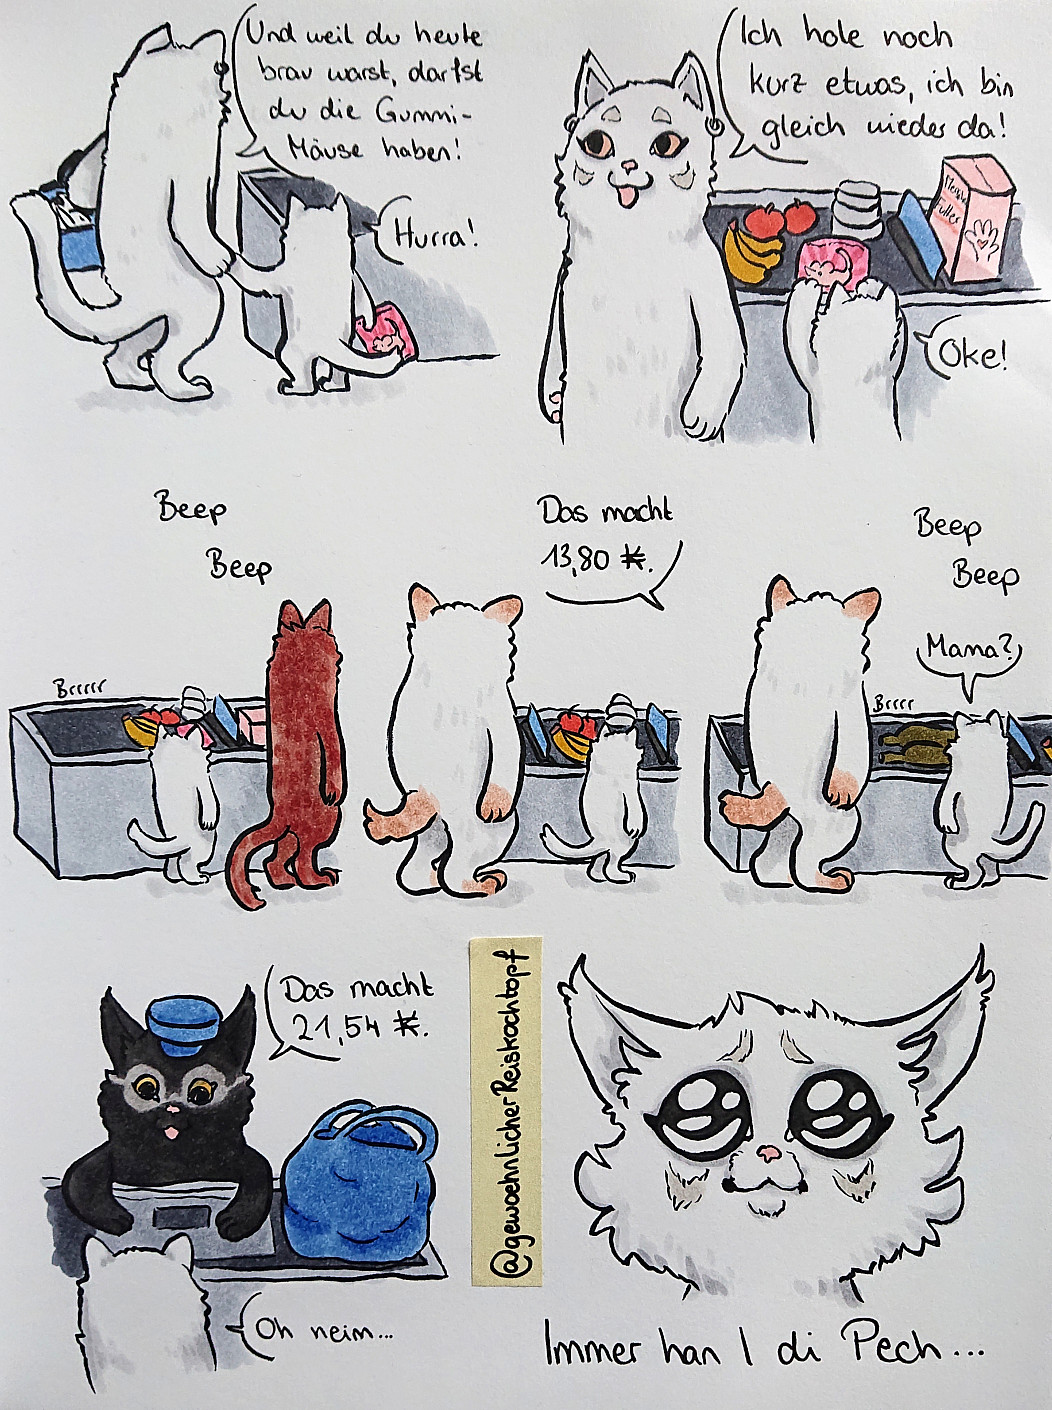 Und weil du heute
brav warst, darfst
du die Gummi-
Mäuse haben!
Hurra!
Ich hole noch
kurz etwas, ich bin
gleich wieder da!
Oke!
Beep
Beep
Brrrrr
Das macht
13,80 ₭.
Beep
Beep
Mama?
Brrrr
Das macht
21,54 ₭.
Oh nein...
@gewoehnlicherReiskochtopf
Immer han I di Pech...